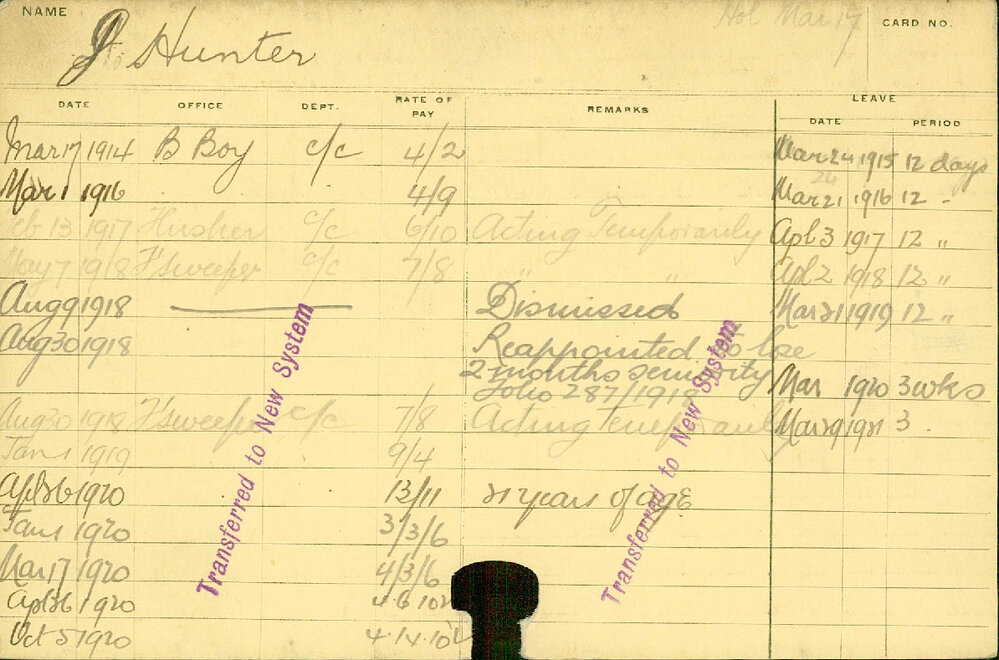 NAME
Hol Mar 17
CARD NO.
J Hunter
DATE OFFICE DEPT. RATE OF PAY REMARKS LEAVE
DATE PERIOD
Mar 17 1914 B Boy c/c 4/2 Mar 24 1915 12 days
Mar 1 1916 4/9 Mar 21 1916 12 "
24
Feb 13 1917 Husher c/c 6/10 Acting Temporarily Apl 3 1917 12 "
May 7 1918 F sweeper c/c 7/8 " " Apl 2 1918 12 "
Aug 9 1918 Dismissed Mar 21 1919 12 "
Aug 30 1918 Reappointed to lose
2 months seniority Mar 1920 3 wks
Folio 287/1918
Aug 30 1918 F sweeper c/c 7/8 Acting Temporarily Mar 29 1921 3 "
Jan 1 1919 9/4
Apl 26 1920 13/11 21 years of age
Jan 1 1920 3/3/6
Mar 17 1920 4/3/6
Apl 26 1920 4 6
Oct 5 1920 4.14.10½
Transferred to New System
Transferred to New System